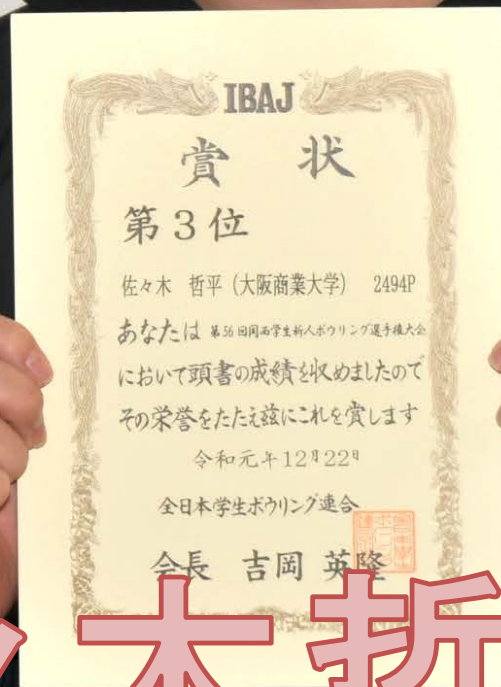 IBAJ
賞 状
第3位
佐々木 哲平 (大阪商業大学) 2494P
あなたは 第56回関西学生新人ボウリング選手権大会
において頭書の成績を収めましたので
その栄誉をたたえ玆にこれを賞します
令和元年12月22日
全日本学生ボウリング連合
会長 吉岡 英隆
木